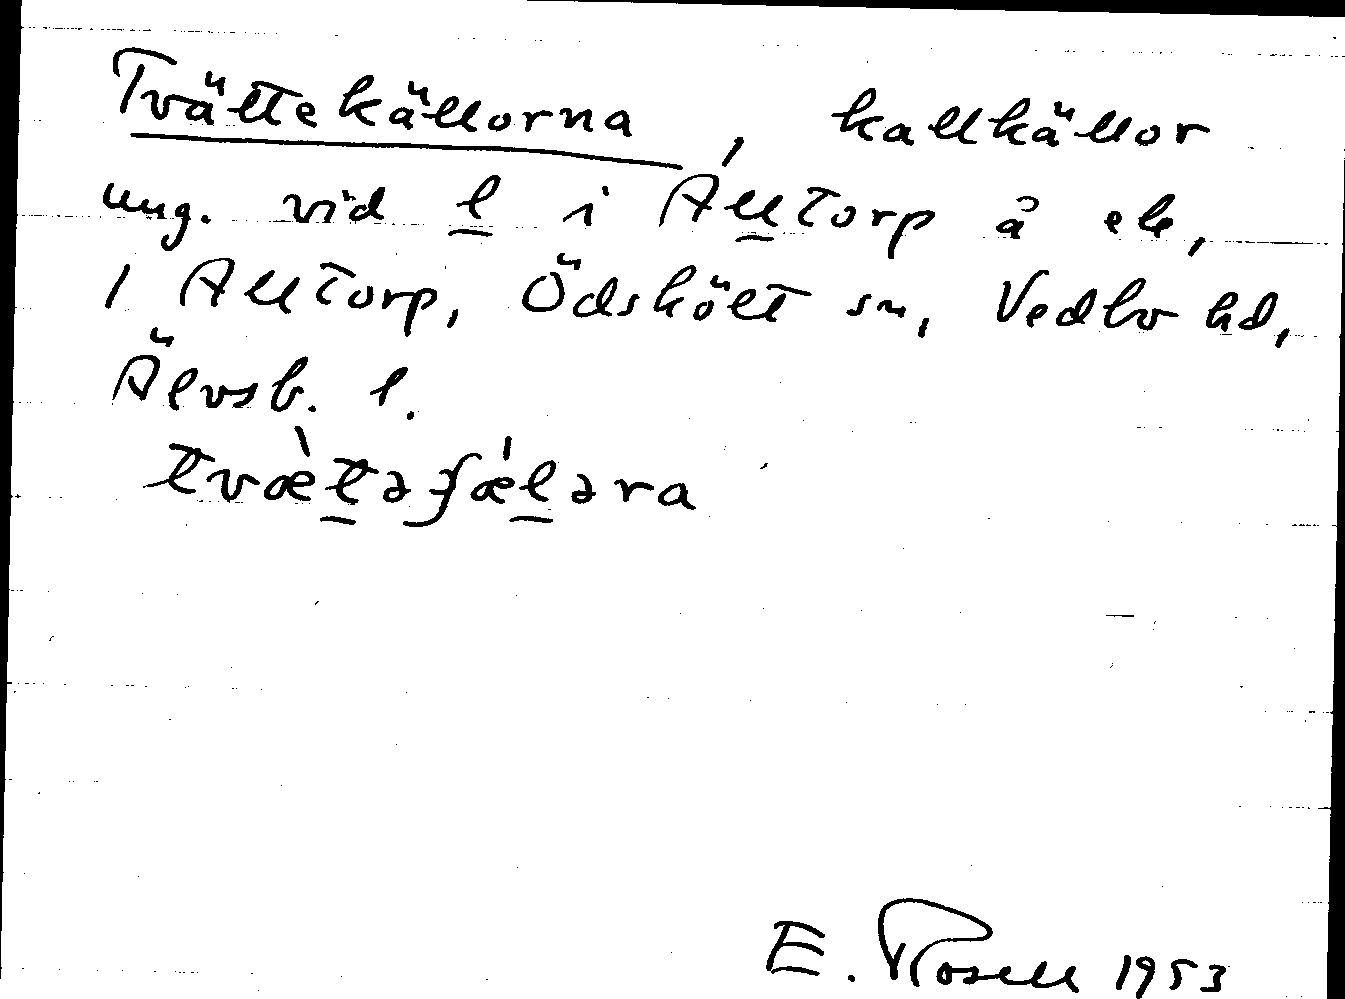 Tvättekällorna, kallkällor
ung. vid l i Alltorp å ek,
1 Alltorp, Ödskölt sn, Vedbo hd,
Älvsb. l.
tvæ̀təʃǽləra
E. Rosell 1953